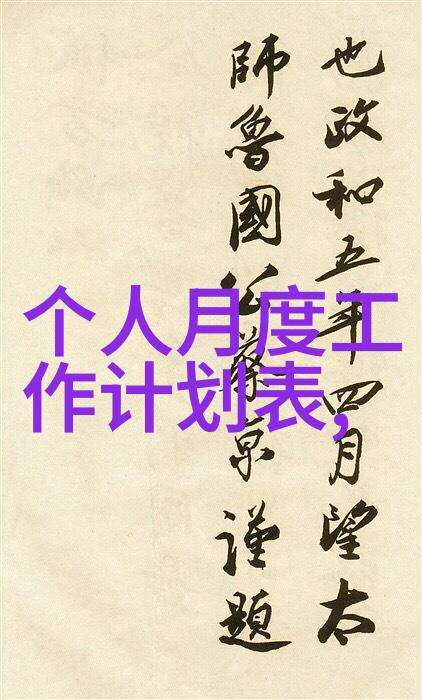 也政和五年四月望太
師魯國公蔡京謹題
个人月度工
作计划表,